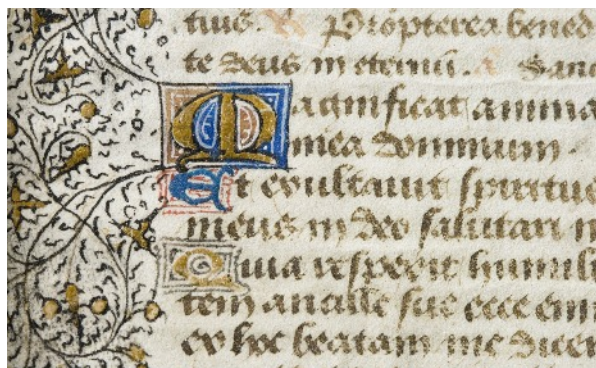 tuis. V Propterea bened
te deus in eternū. A Sanc
Magnificat anima
mea dominum.
Et exultauit spiritus
meus in deo salutari m
Quia respexit humili
tem ancille sue ecce enim
ex hoc beatam me dicen